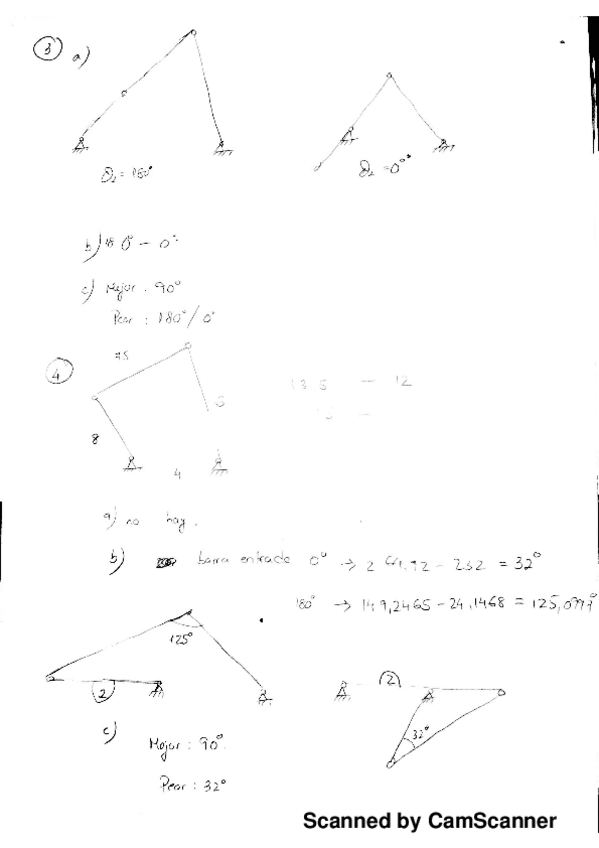 3 a)
θ₂ = 180°
θ₂ = 0°
b) 0° - 0°
c) Mejor : 90°
Peor : 180° / 0°
4
8
4
a) no hay.
b) barra entrada 0° →
180° → 149,2465 - 24,1468 = 125,0997°
125°
2
2
32°
c)
Mejor : 90°
Peor : 32°
Scanned by CamScanner